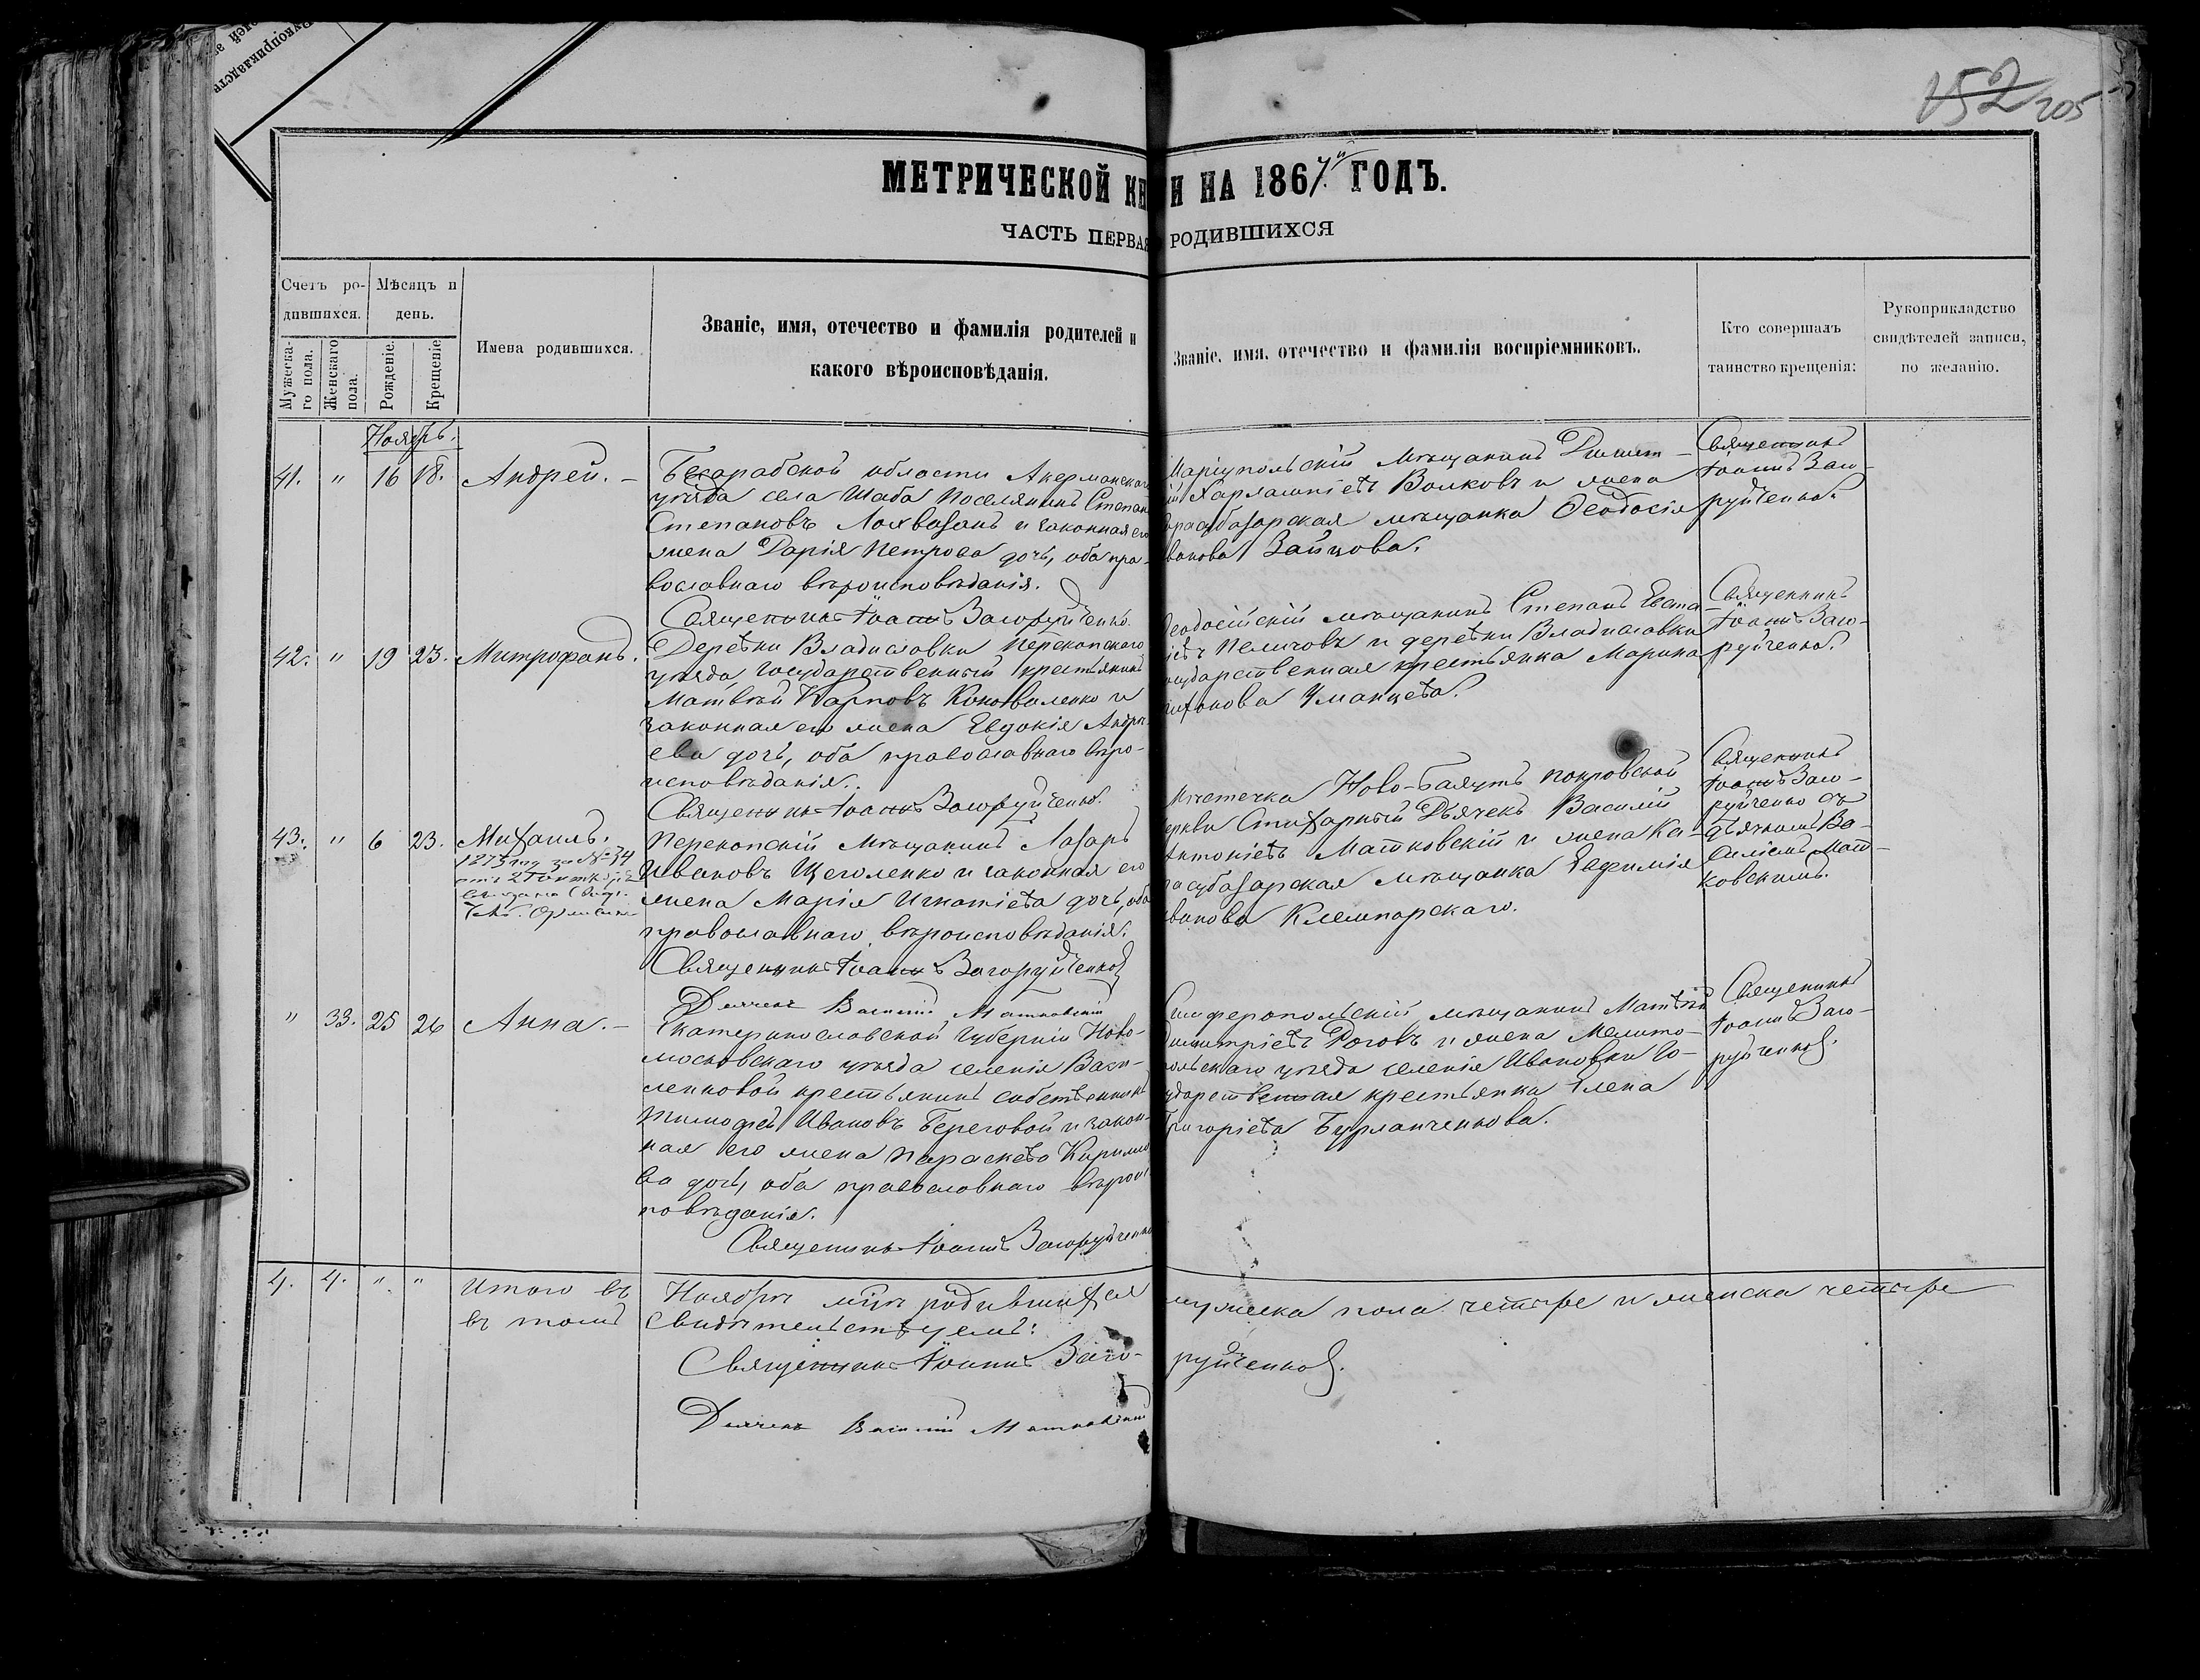 152 205
МЕТРИЧЕСКОЙ КН И НА 1867й ГОДЪ.
ЧАСТЬ ПЕРВАЯ РОДИВШИХСЯ
Счетъ ро-
дившихся.
Мужеска-
го пола.
Женскаго
пола.
Мѣсяцъ и
день.
Рожденіе.
Крещеніе
Имена родившихся.
Званіе, имя, отечество и фамилія родителей и
какого вѣроисповѣданія.
Званіе, имя, отечество и фамилія воспріемниковъ.
Кто совершалъ
таинство крещенія:
Рукоприкладство
свидѣтелей записи,
по желанію.
Ноябрь.
41. " 16 18. Андрей. –
Бесарабской области Акерманскаго
уѣзда села Шаба поселянинъ Степанъ
Степановъ и законная его
жена Дарія Петрова дочь, оба пра-
вославнаго вѣроисповѣданія.
Священникъ Іоаннъ Загоруйченко.
Маріупольскій мѣщанинъ Димит-
ій Харлампіевъ Волковъ и жена
расубазарская мѣщанка Ѳеодосія
ванова Зайцова.
Священникъ
Іоаннъ Заго-
руйченко.
42. " 19 23. Митрофанъ.
Деревни Владиславки Перекопскаго
уѣзда, государственный крестьянинъ
Матвѣй Карповъ Коноваленко и
законная его жена Евдокія Андре-
ева дочь, оба православнаго вѣро-
исповѣданія.
Священникъ Іоаннъ Загоруйченко.
еодосійскій мѣщанинъ Степанъ Евста-
іевъ Пеличовъ и деревни Владиславки
осударственная крестьянка Марина
Уманцева.
Священникъ
Іоаннъ Заго-
руйченко.
43. " 6 23. Михаилъ.
Перекопскій мѣщанинъ Лазарь
Ивановъ Щеголенко и законная его
жена Марія Игнатіева дочь, оба
православнаго вѣроисповѣданія.
Священникъ Іоаннъ Загоруйченко
Дьячекъ Василій Матковскій
Мѣстечка Ново- Покровской
еркви Стихарный Дьячекъ Василій
Антоніевъ Матковскій и жена Ка-
расубазарская мѣщанка Евфимія
ванова
Священникъ
Іоаннъ Заго-
руйченко съ
дьячкомъ Ва-
силіемъ Мат-
ковскимъ.
" 33. 25 26 Анна. –
Екатеринославской губерніи Ново-
московскаго уѣзда селенія Васи-
лковой крестьянинъ собственникъ
Тимофей Ивановъ Береговой и закон-
ная его жена Параскева Кирило-
ва дочь, оба православнаго вѣроис-
повѣданія.
Священникъ Іоаннъ Загоруйченко
Симферопольскій мѣщанинъ Матвѣй
Димитріевъ Роговъ и жена Мелито-
польскаго уѣзда селенія Ивановки го-
ударственная крестьянка Елена
Григоріева Бурланченкова.
Священникъ
Іоаннъ Заго-
руйченко.
4. 4. " " Итого въ Ноябрѣ мцѣ родившихся мужеска пола четыре и женска четыре
въ томъ свидѣтельствуемъ:
Священникъ Іоаннъ Заго- руйченко.
Дьячекъ Василій Матковскій